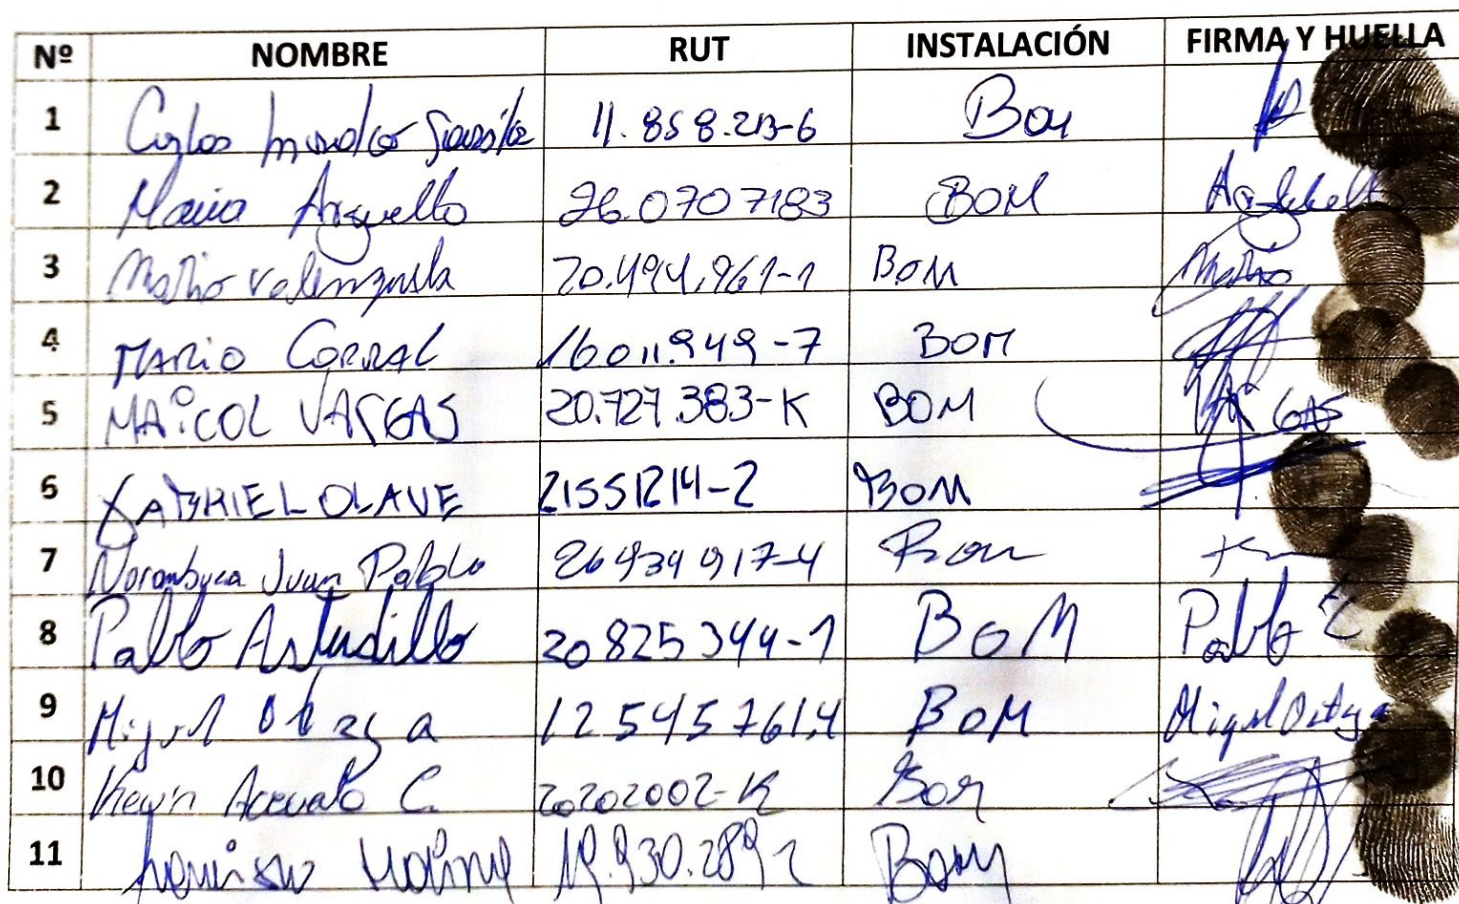 Nº NOMBRE RUT INSTALACIÓN FIRMA Y HUELLA
1 Carlos 11.858.213-6 BOM
2 Maria Arguello 26.0707183 BOM
3 Matio Valenzuela 20.494.961-1 BOM Matio
4 MARIO CORRAL 16.011.949-7 BOM
5 MAICOL VARGAS 20.727.383-K BOM VARGAS
6 GABRIEL OLAVE 21551214-2 BOM
7 Norambuca Juan Pablo 26934917-4 Bom
8 Pablo Astudillo 20825344-1 BOM Pablo
9 Miguel 12545761,4 BOM Miguel Ortega
10 Kevin Acevedo C. 20202002-K Bom
11 19.930.289-2 Bom